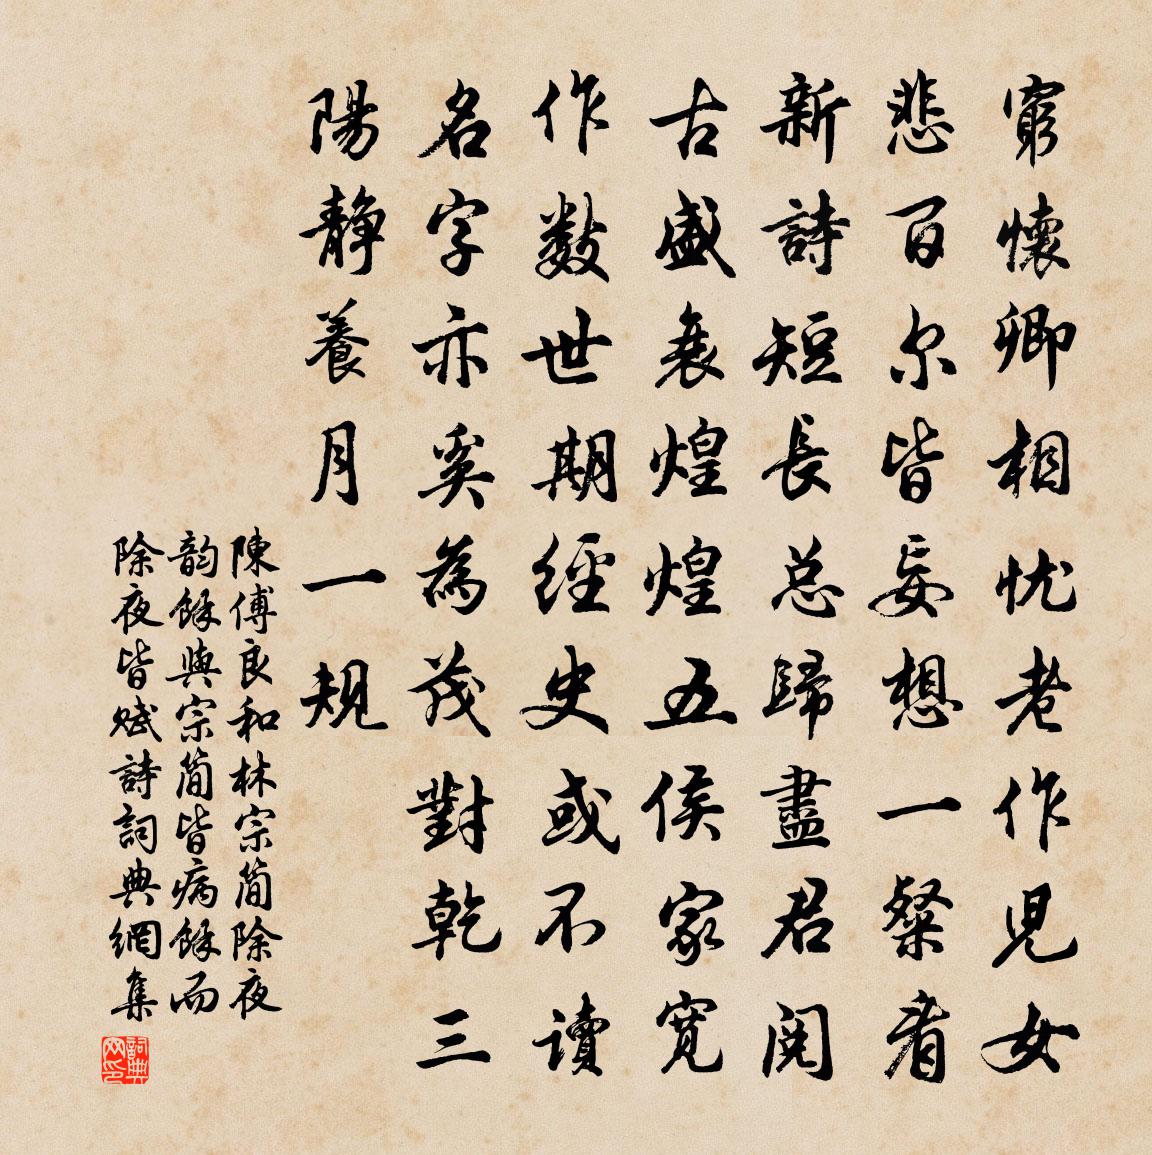 窮懷卿相忧老作児女
悲百尔皆妄想一粲看
新詩短長总歸盡君閱
古盛衰煌煌五侯家寬
作数世期經史或不讀
名字亦奚為茂對乾三
陽靜養月一規
陳傅良和林宗簡除夜
韵餘與宗簡皆病餘而
除夜皆赋詩詞典網集
詞典
网印